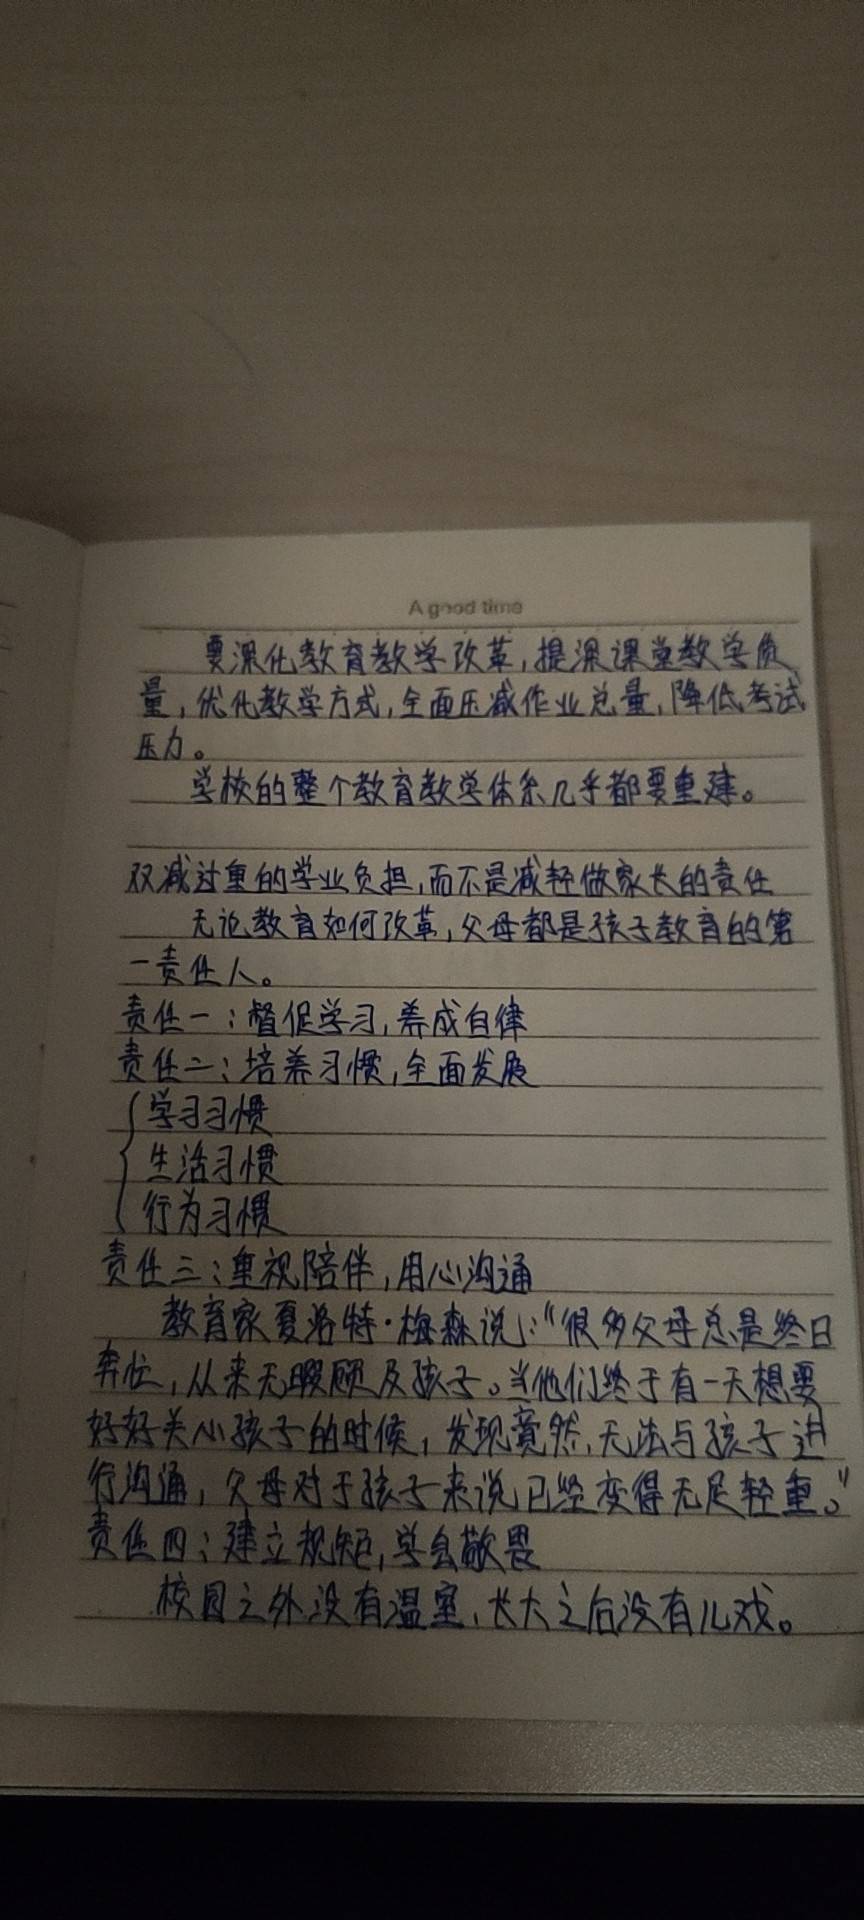 A good time
要深化教育教学改革,提深课堂教学质
量,优化教学方式,全面压减作业总量,降低考试
压力。
学校的整个教育教学体系几乎都要重建。
双减过重的学业负担,而不是减轻做家长的责任
无论教育如何改革,父母都是孩子教育的第
一责任人。
责任一:督促学习,养成自律
责任二:培养习惯,全面发展
学习习惯
生活习惯
行为习惯
责任三:重视陪伴,用心沟通
教育家夏洛特·梅森说:“很多父母总是终日
奔忙,从来无暇顾及孩子。当他们终于有一天想要
好好关心孩子的时候,发现竟然,无法与孩子进
行沟通,父母对于孩子来说已经变得无足轻重。”
责任四:建立规矩,学会敬畏
校园之外没有温室,长大之后没有儿戏。